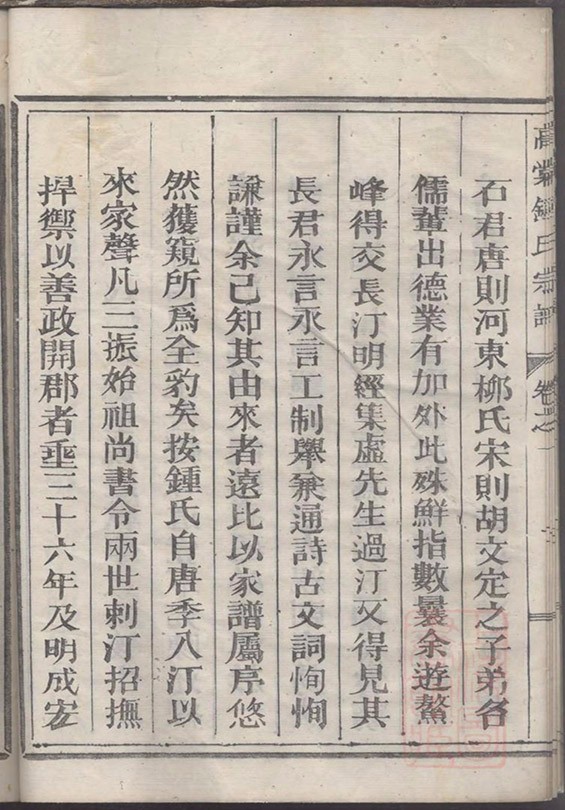 石君唐則河東柳氏宋則胡文定之子弟各
儒輩出德業有加外此殊鮮指數曩余遊鰲
峰得交長汀明經集虛先生過汀又得見其
長君永言永言工制舉兼通詩古文詞恂恂
謙謹余已知其由來者遠比以家譜屬序悠
然獲窺所為全豹矣按鍾氏自唐季入汀以
來家聲凡三振始祖尚書令兩世刺汀招撫
捍禦以善政開郡者垂三十六年及明成宏
氏宗譜
卷之一